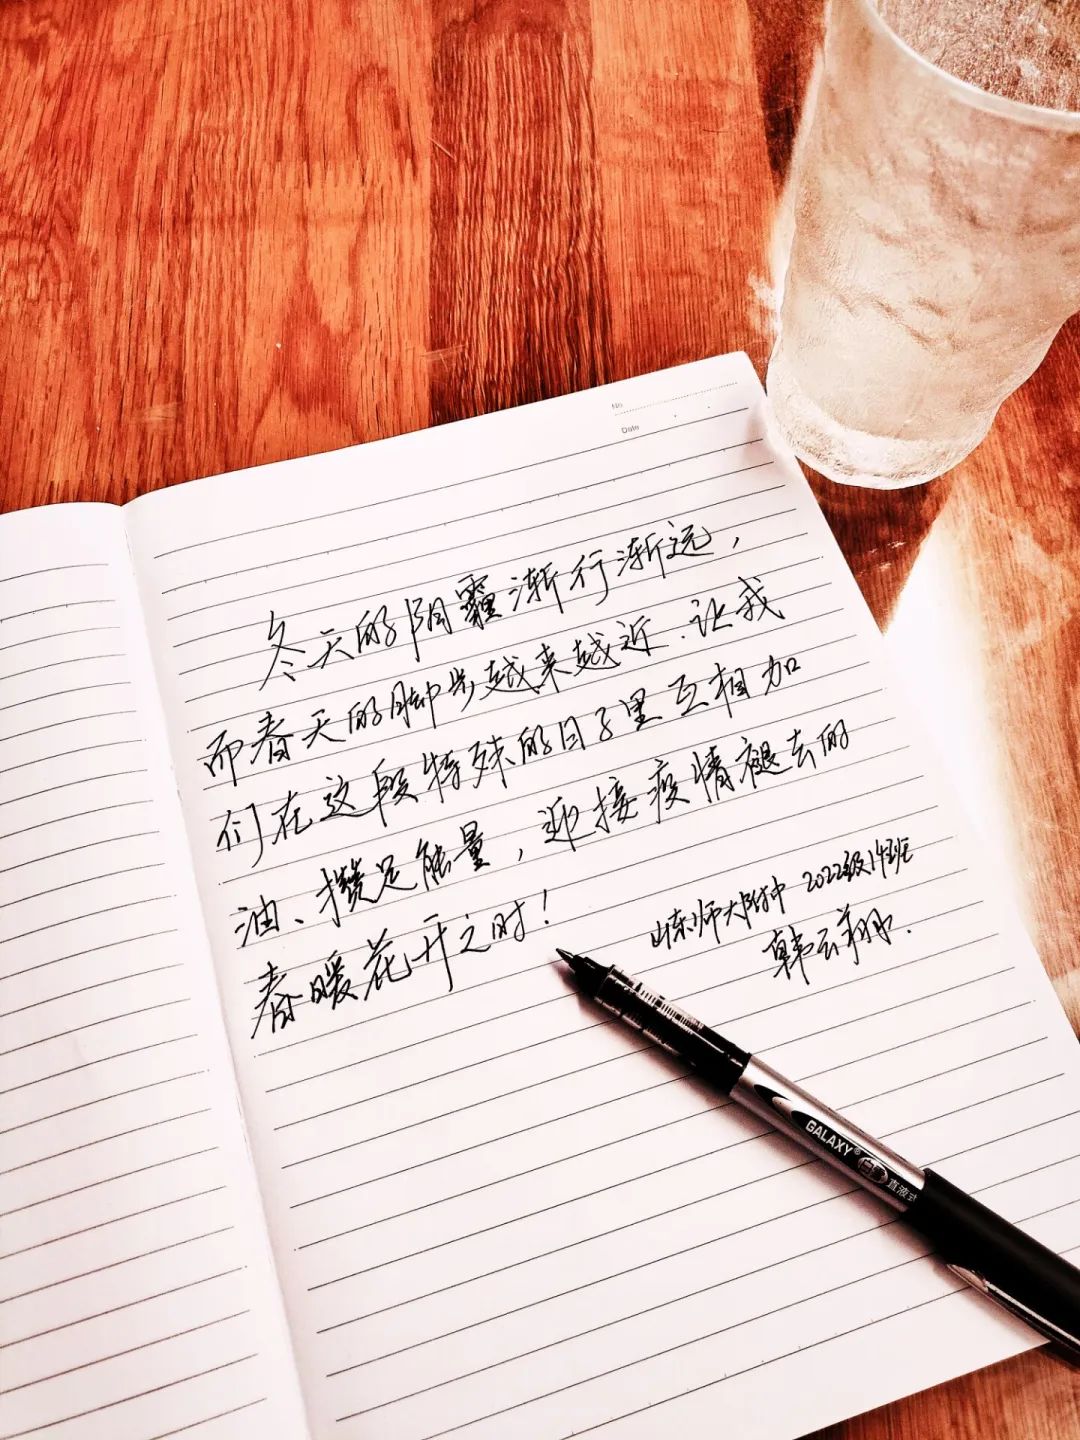 No.
Date
冬天的阴霾渐行渐远，
而春天的脚步越来越近.让我
们在这段特殊的日子里互相加
油、攒足能量，迎接疫情褪去的
春暖花开之时！
山东师大附中 2022级14班
韩云翔.
GALAXY®
直液式